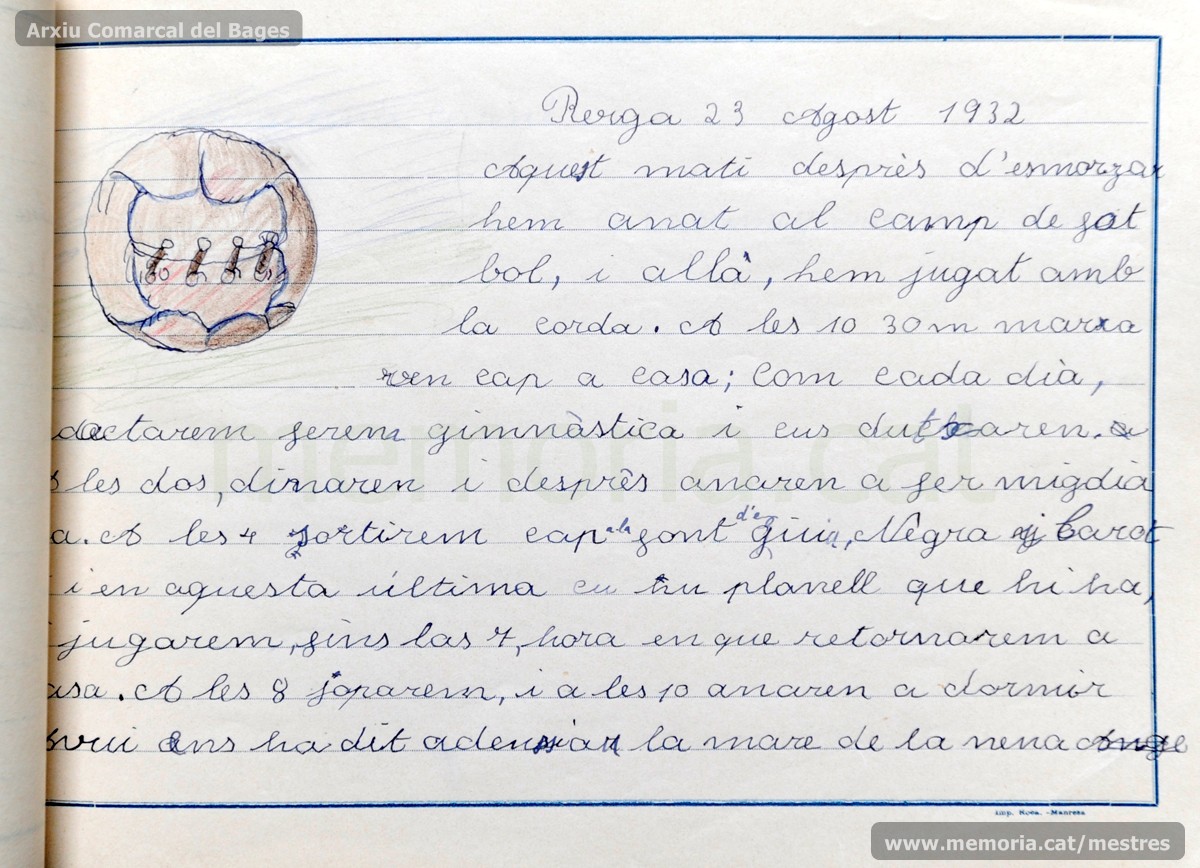 Arxiu Comarcal del Bages
Berga 23 Agost 1932
Aquest mati desprès d'esmorzar
hem anat al camp de fot
bol, i allà, hem jugat amb
la corda. A les 10 30m marxa
rem cap a casa; Com cada dia,
dactarem ferem gimnàstica i ens dutxaren. a
les dos, dinaren i desprès anaren a fer migdia
a. A les 4 sortirem cap a la font d'en Negra i
i en aquesta última en un planell que hi ha,
jugarem, fins las 7, hora en que retornarem a
asa. A les 8 soparem, i a les 10 anaren a dormir
vui ens ha dit la mare de la nena Ange
Imp. Roca. - Manresa
memoria.cat
www.memoria.cat/mestres